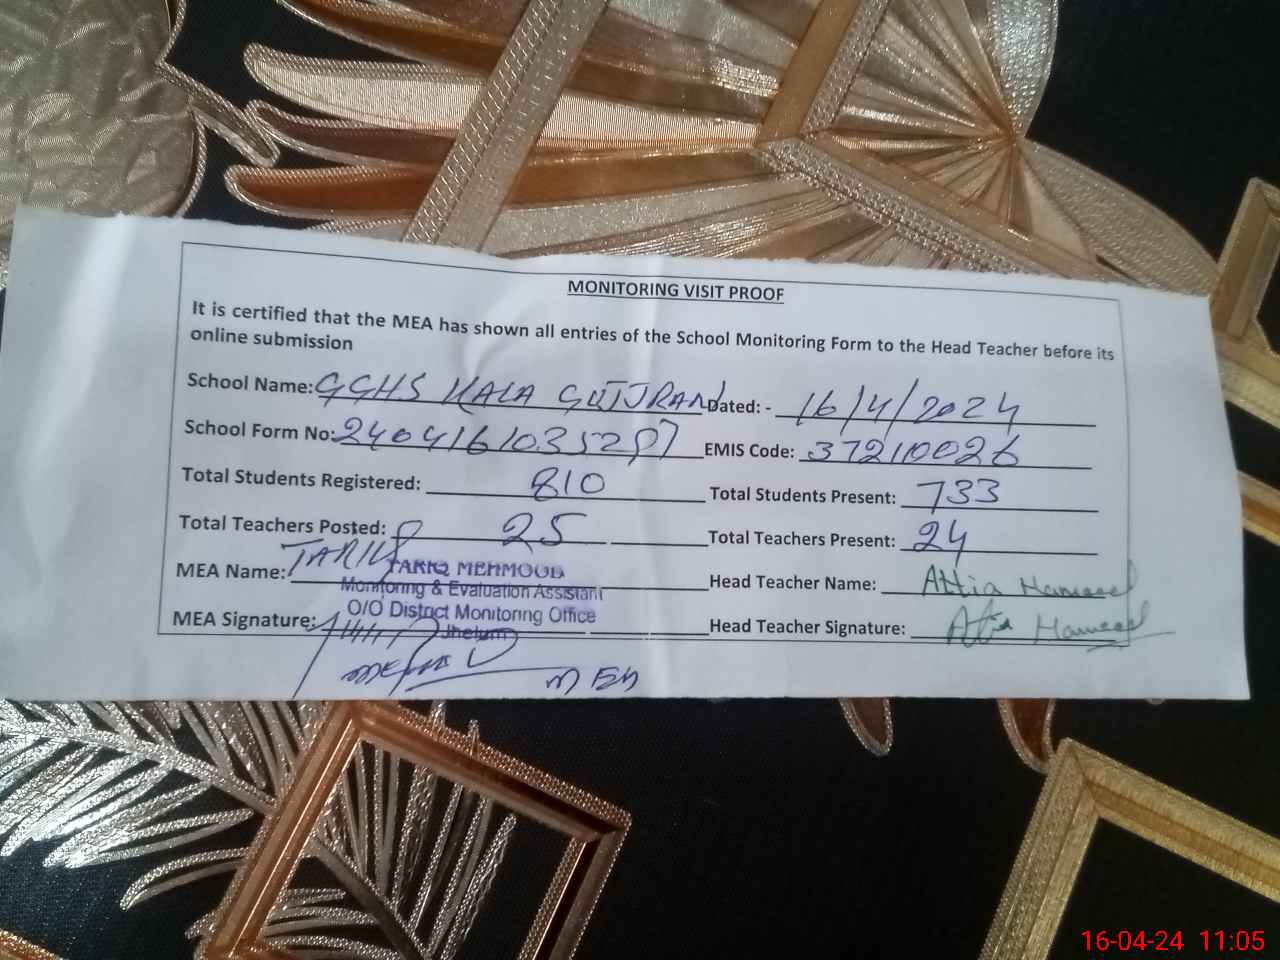 MONITORING VISIT PROOF
It is certified that the MEA has shown all entries of the School Monitoring Form to the Head Teacher before its
online submission
School Name: GGHS KALA GUJJRAN Dated: - 16/4/2024
School Form No: EMIS Code: 37210026
Total Students Registered: 810 Total Students Present: 733
Total Teachers Posted: 25 Total Teachers Present: 24
MEA Name: TARIQ Head Teacher Name: Attia Hameed
TARIQ MEHMOOD
Monitoring & Evaluation Assistant
O/O District Monitoring Office
Jhelum
MEA Signature: Head Teacher Signature: Attia Hameed
MEA
16-04-24 11:05